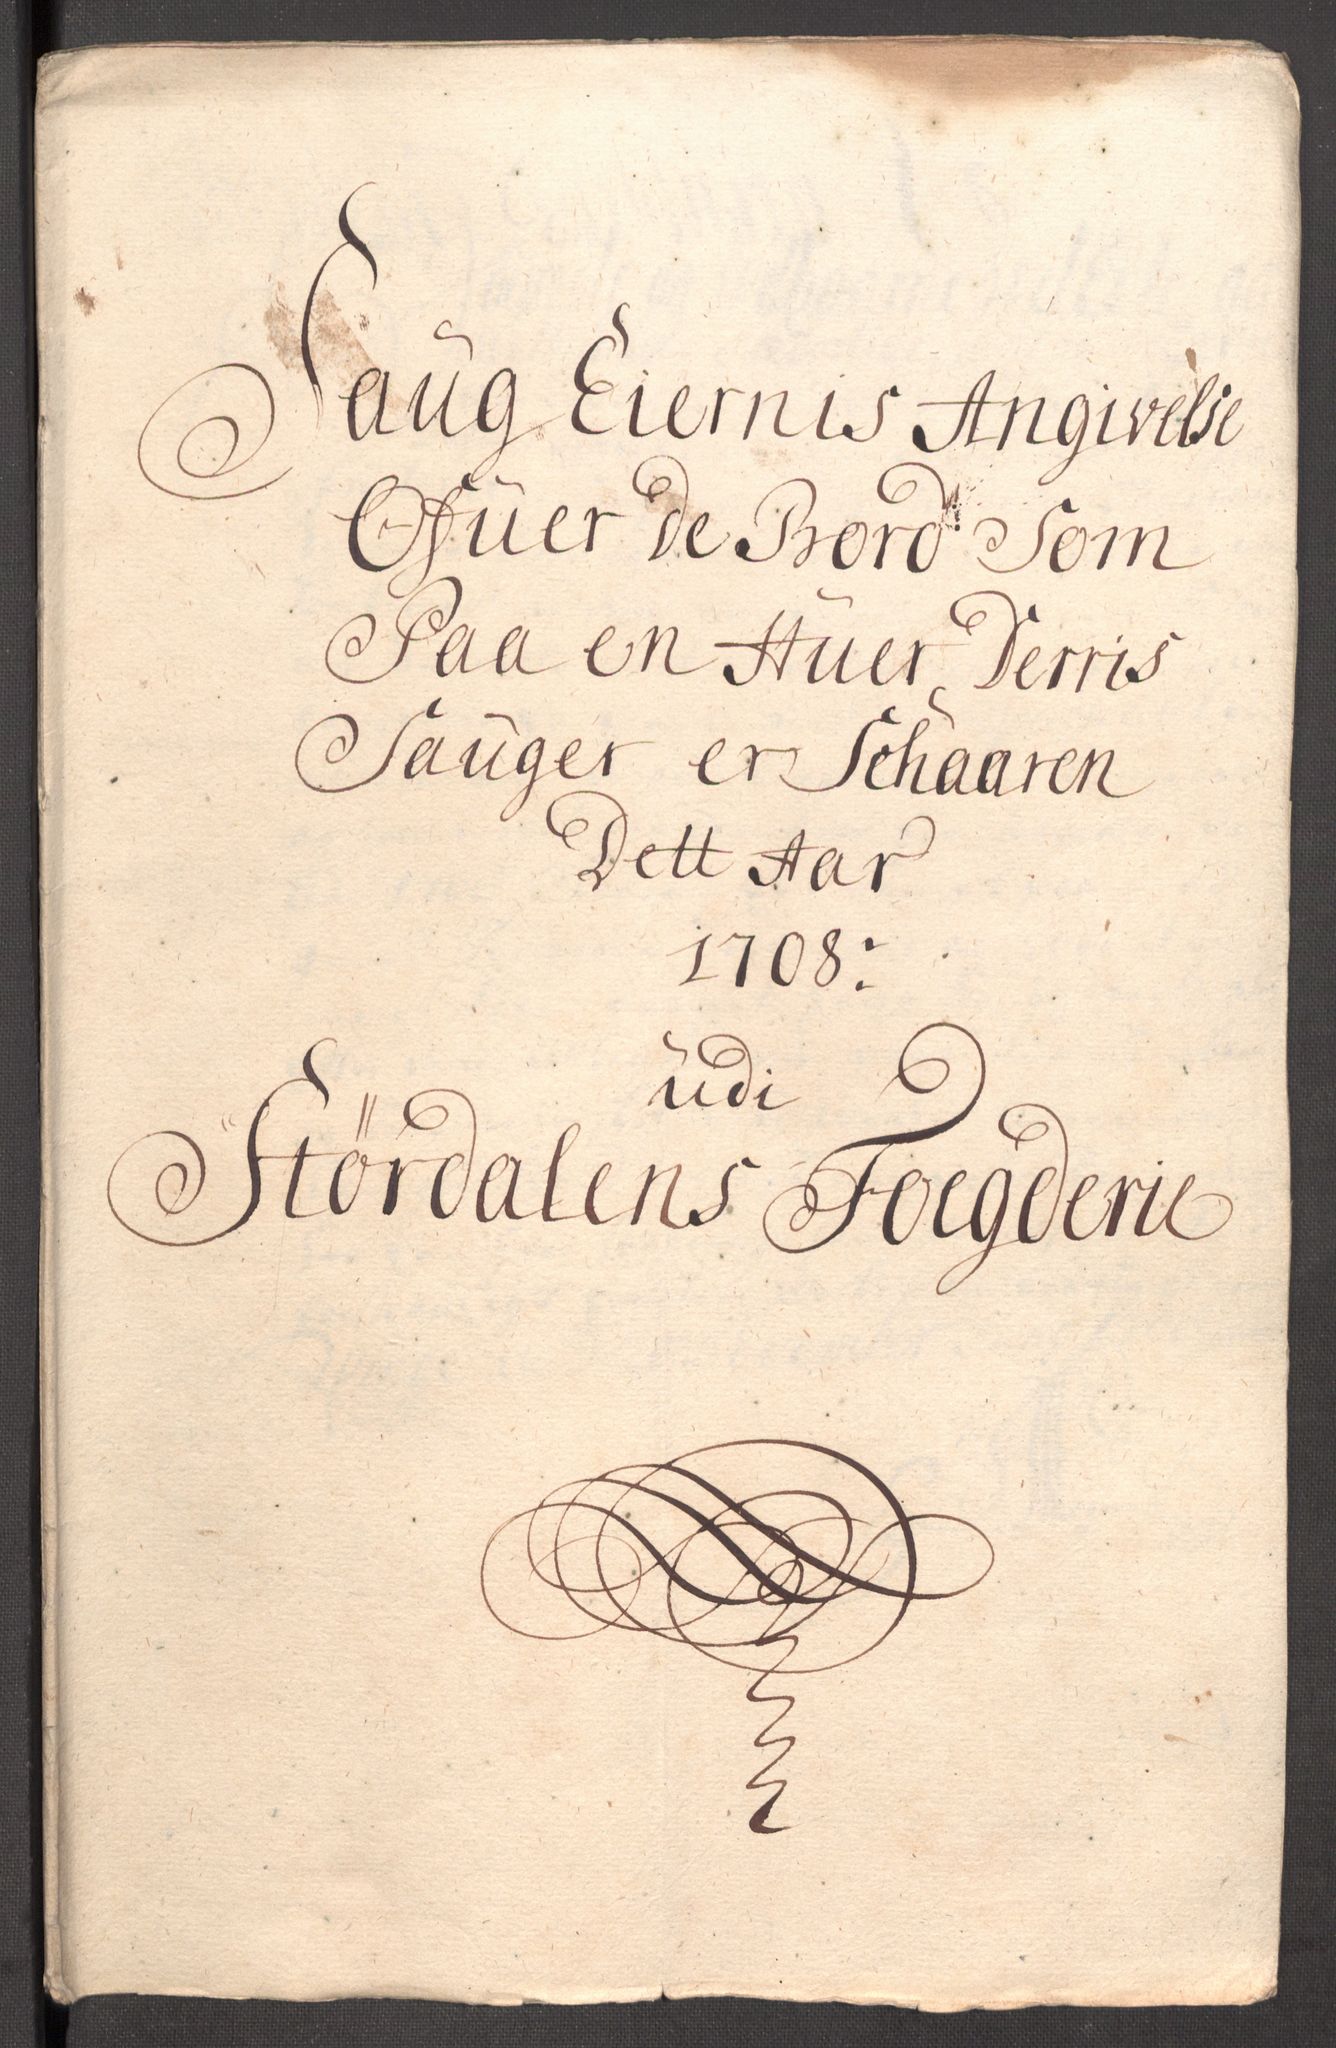 Saug Eiernis Angivelse
Ofuer de Bord Som
Paa en Huer Derris
Sauger er Schaaren
Dett Aar
1708:
udi
Stördalens Foegderie